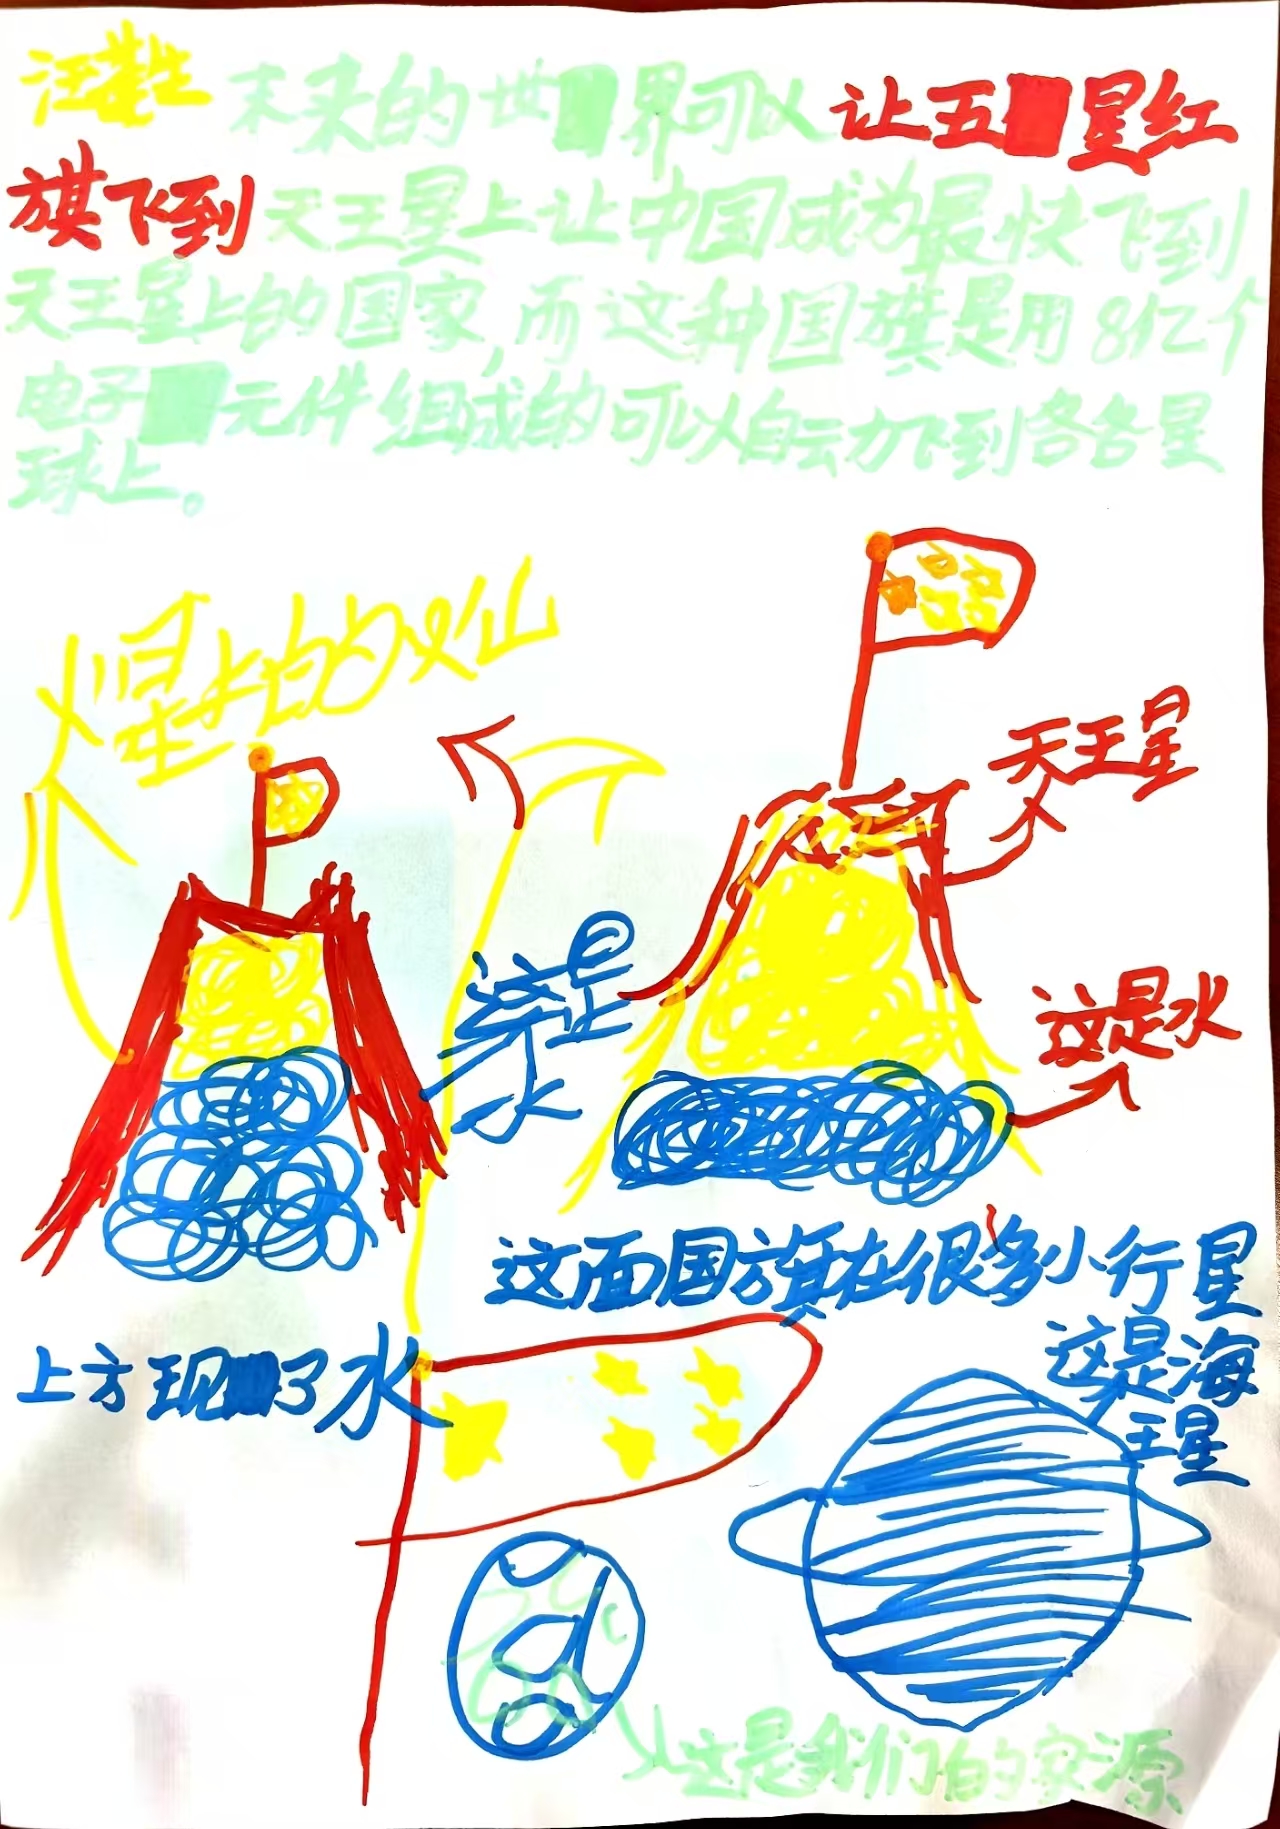 未来的世界可以让五星红
旗飞到天王星上让中国成为最快飞到
天王星上的国家,而这种国旗是用8亿个
电子元件组成的可以自动飞到各各星
球上。
火星上的火山
天王星
这是
水
这是水
这面国旗在很多小行星
上方现了水
这是海
王星
这是我们的家源